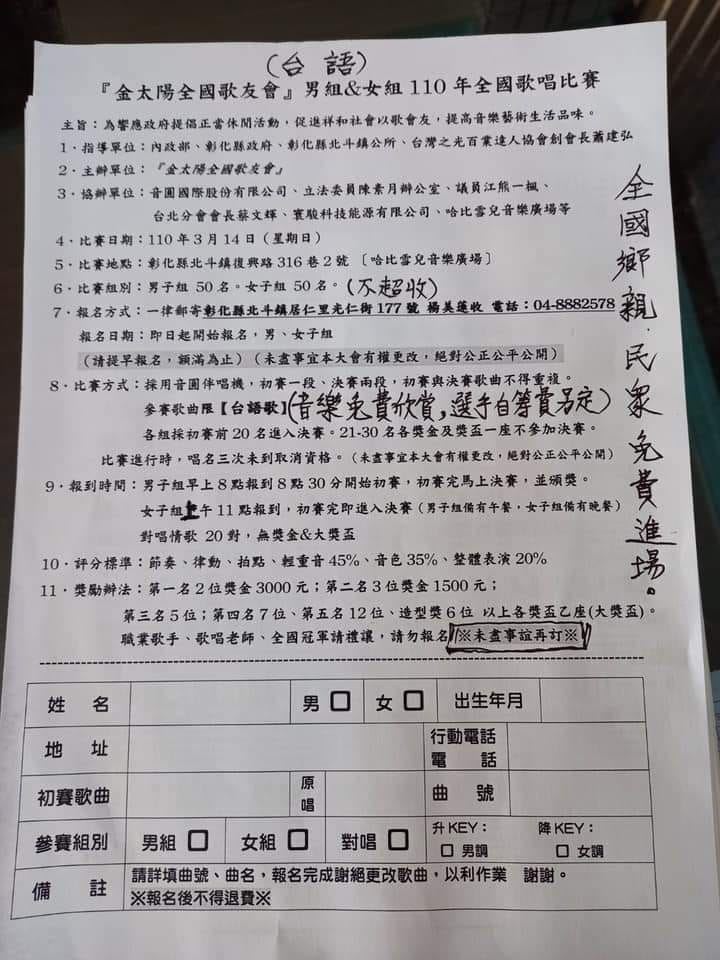 (台語)
『金太陽全國歌友會』男組&女組 110 年全國歌唱比賽
主旨：為響應政府提倡正當休閒活動，促進祥和社會以歌會友，提高音樂藝術生活品味。
1．指導單位：內政部、彰化縣政府、彰化縣北斗鎮公所、台灣之光百業達人協會創會長蕭建弘
2．主辦單位：『金太陽全國歌友會』
3．協辦單位：音圓國際股份有限公司、立法委員陳素月辦公室、議員江熊一楓、
台北分會會長蔡文輝、寰駿科技能源有限公司、哈比雪兒音樂廣場等
4．比賽日期：110 年 3 月 14 日（星期日）
5．比賽地點：彰化縣北斗鎮復興路 316 巷 2 號 〔哈比雪兒音樂廣場〕
6．比賽組別：男子組 50 名。女子組 50 名。(不超收)
7．報名方式：一律郵寄彰化縣北斗鎮居仁里光仁街 177 號 楊美蓮收 電話：04-8882578
報名日期：即日起開始報名，男、女子組
（請提早報名，額滿為止）（未盡事宜本大會有權更改，絕對公正公平公開）
8．比賽方式：採用音圓伴唱機，初賽一段、決賽兩段，初賽與決賽歌曲不得重複。
參賽歌曲限【台語歌】(音樂免費欣賞,選手自等費另定)
各組採初賽前 20 名進入決賽。21-30 名各獎金及獎盃一座不參加決賽。
比賽進行時，唱名三次未到取消資格。（未盡事宜本大會有權更改，絕對公正公平公開）
9．報到時間：男子組早上 8 點報到 8 點 30 分開始初賽，初賽完馬上決賽，並頒獎。
女子組上午 11 點報到，初賽完即進入決賽（男子組備有午餐，女子組備有晚餐）
對唱情歌 20 對，無獎金&大獎盃
10．評分標準：節奏、律動、拍點、輕重音 45%、音色 35%、整體表演 20%
11．獎勵辦法：第一名 2 位獎金 3000 元；第二名 3 位獎金 1500 元；
第三名 5 位；第四名 7 位、第五名 12 位、造型獎 6 位 以上各獎盃乙座(大獎盃)。
職業歌手、歌唱老師、全國冠軍請禮讓，請勿報名 ※未盡事誼再訂※
全國鄉親．民眾免費進場。
姓 名 男 □ 女 □ 出生年月
地 址 行動電話
電 話
初賽歌曲 原唱 曲 號
參賽組別 男組 □ 女組 □ 對唱 □ 升 KEY： 降 KEY：
□ 男調 □ 女調
備 註 請詳填曲號、曲名，報名完成謝絕更改歌曲，以利作業 謝謝。
※報名後不得退費※